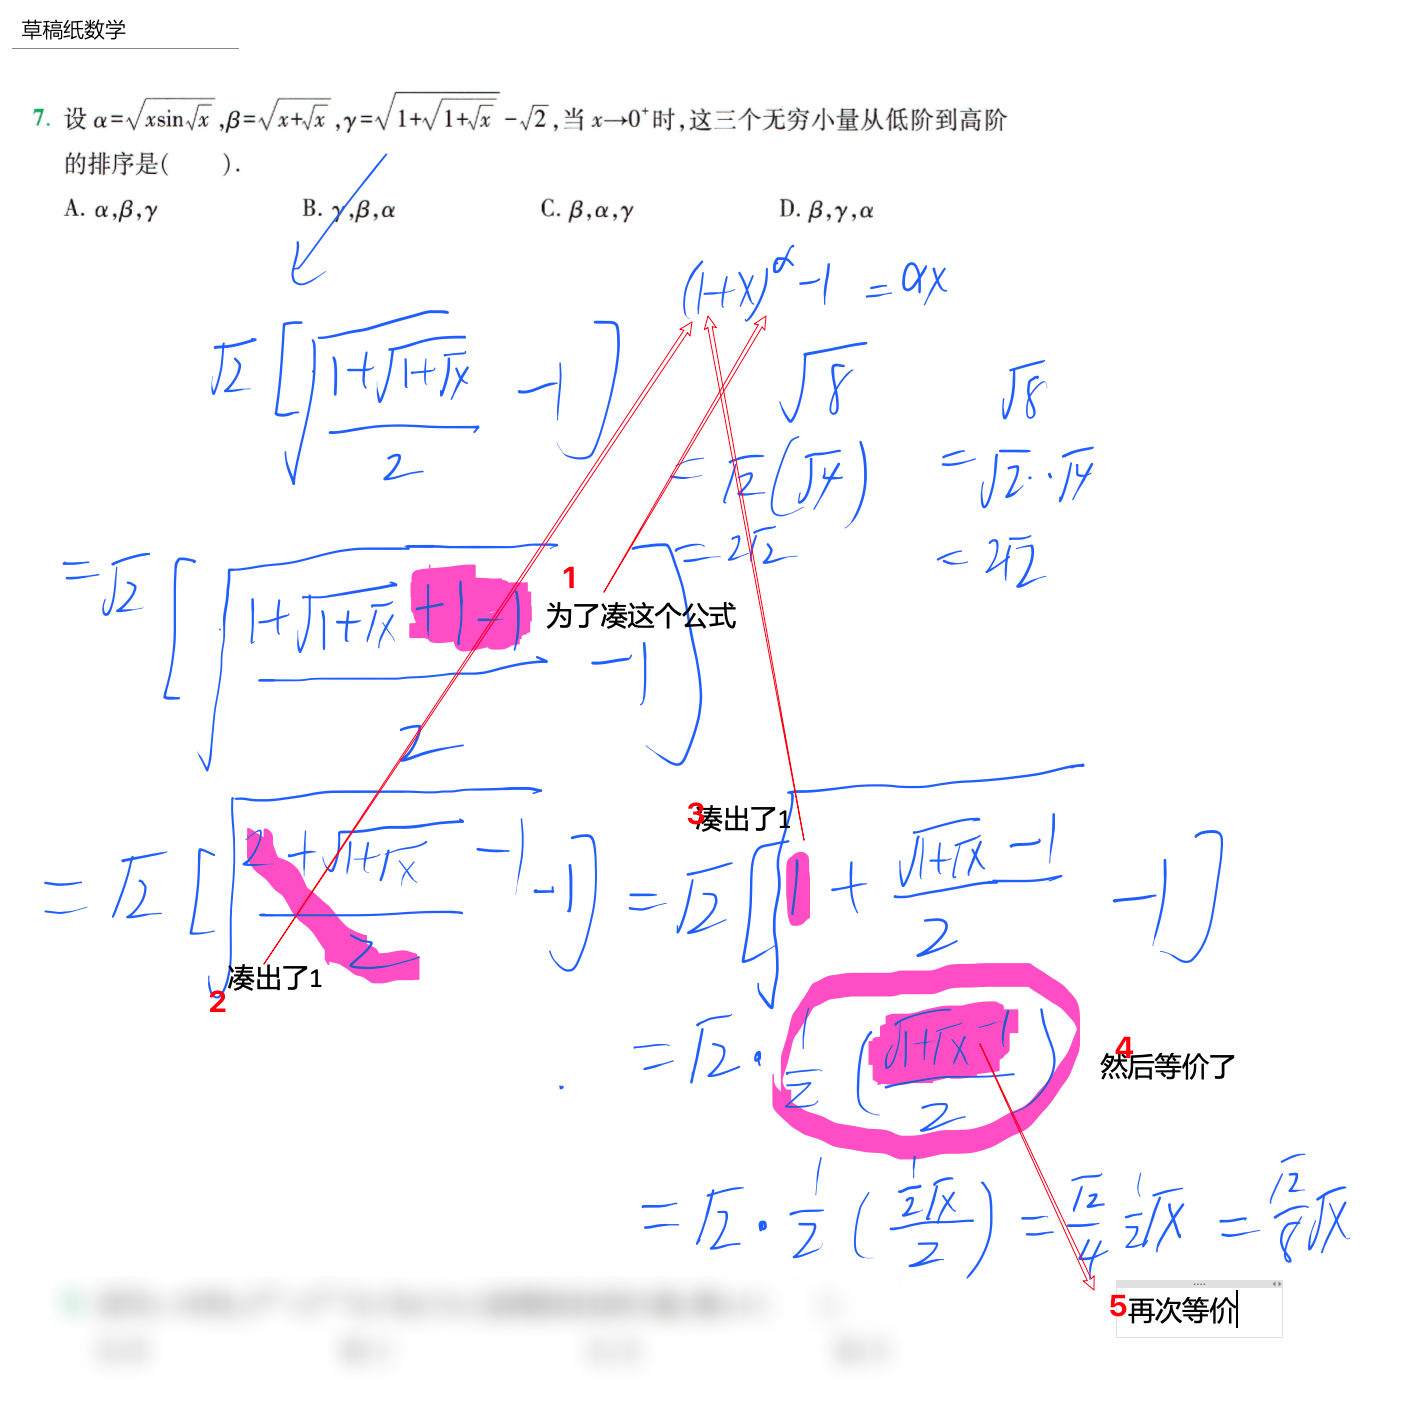 草稿纸数学
7. 设 α=√(xsin√x) ,β=√(x+√x) ,γ=√(1+√(1+√x)) -√2 ,当 x→0⁺时,这三个无穷小量从低阶到高阶
的排序是(  ).
A. α,β,γ B. γ,β,α C. β,α,γ D. β,γ,α
(1+x)^α -1 = αx
√2 [√((1+√(1+√x))/2) -1]
√8 √8
= √2 (√4) = √2·√4
= 2√2 = 2√2
= √2 [√((1+√(1+√x)+1-1)/2) -1]
1
为了凑这个公式
3凑出了1
= √2 [√((2+√(1+√x) -1)/2) -1] = √2 [√(1+(√(1+√x) -1)/2) -1]
凑出了1
2
= √2 · 1/2 ((√(1+√x) -1)/2)
4
然后等价了
= √2 · 1/2 ((1/2 √x)/2) = √2/4 1/2 √x = √2/8 √x
5再次等价